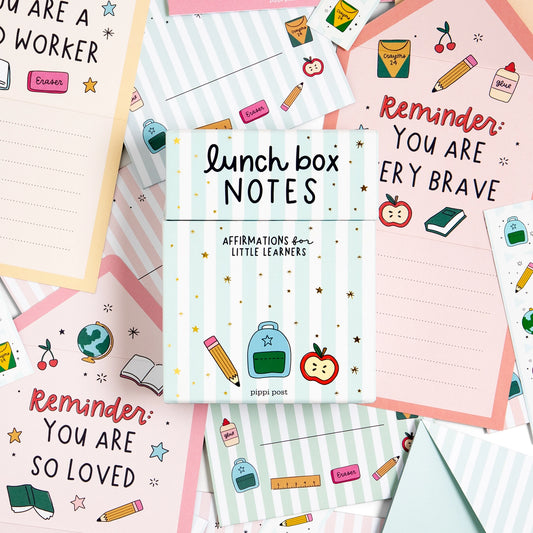 YOU ARE A
WORKER
Eraser
Crayons
24
Eraser
Crayons
24
Glue
Reminder:
YOU ARE
VERY BRAVE
lunch box
NOTES
AFFIRMATIONS for
LITTLE LEARNERS
pippi post
Reminder:
YOU ARE
SO LOVED
Glue
Eraser